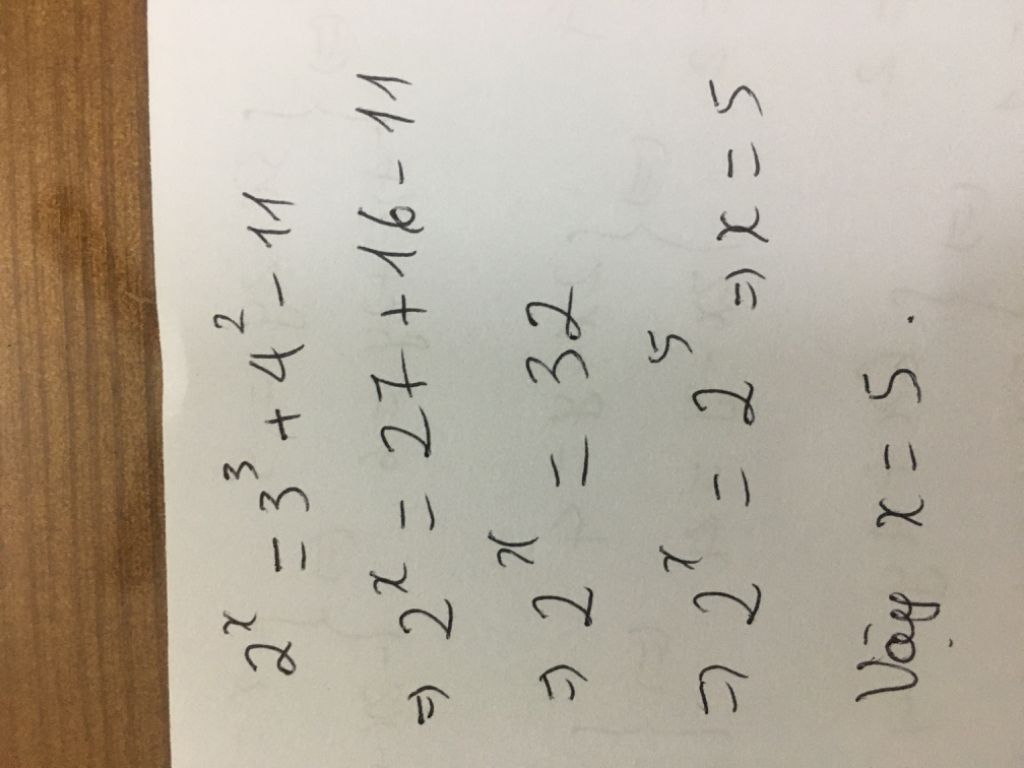 2ˣ = 3³ + 4² - 11
⇒ 2ˣ = 27 + 16 - 11
⇒ 2ˣ = 32
⇒ 2ˣ = 2⁵ ⇒ x = 5
Vậy x = 5.